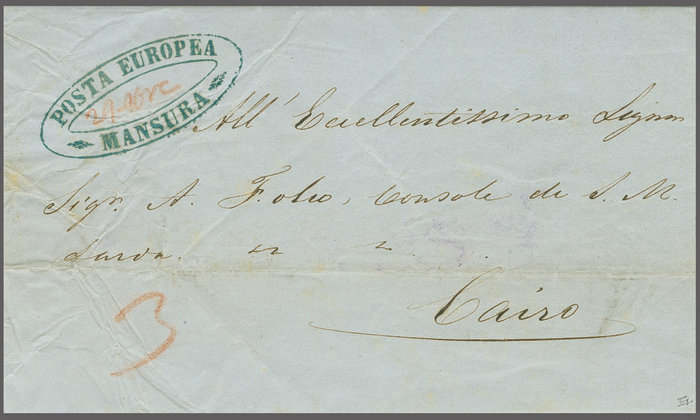 POSTA EUROPEA
MANSURA
All' Eccellentissimo Signor
Sigr. A. Folco, Console di S. M.
Sarda.
Cairo
3